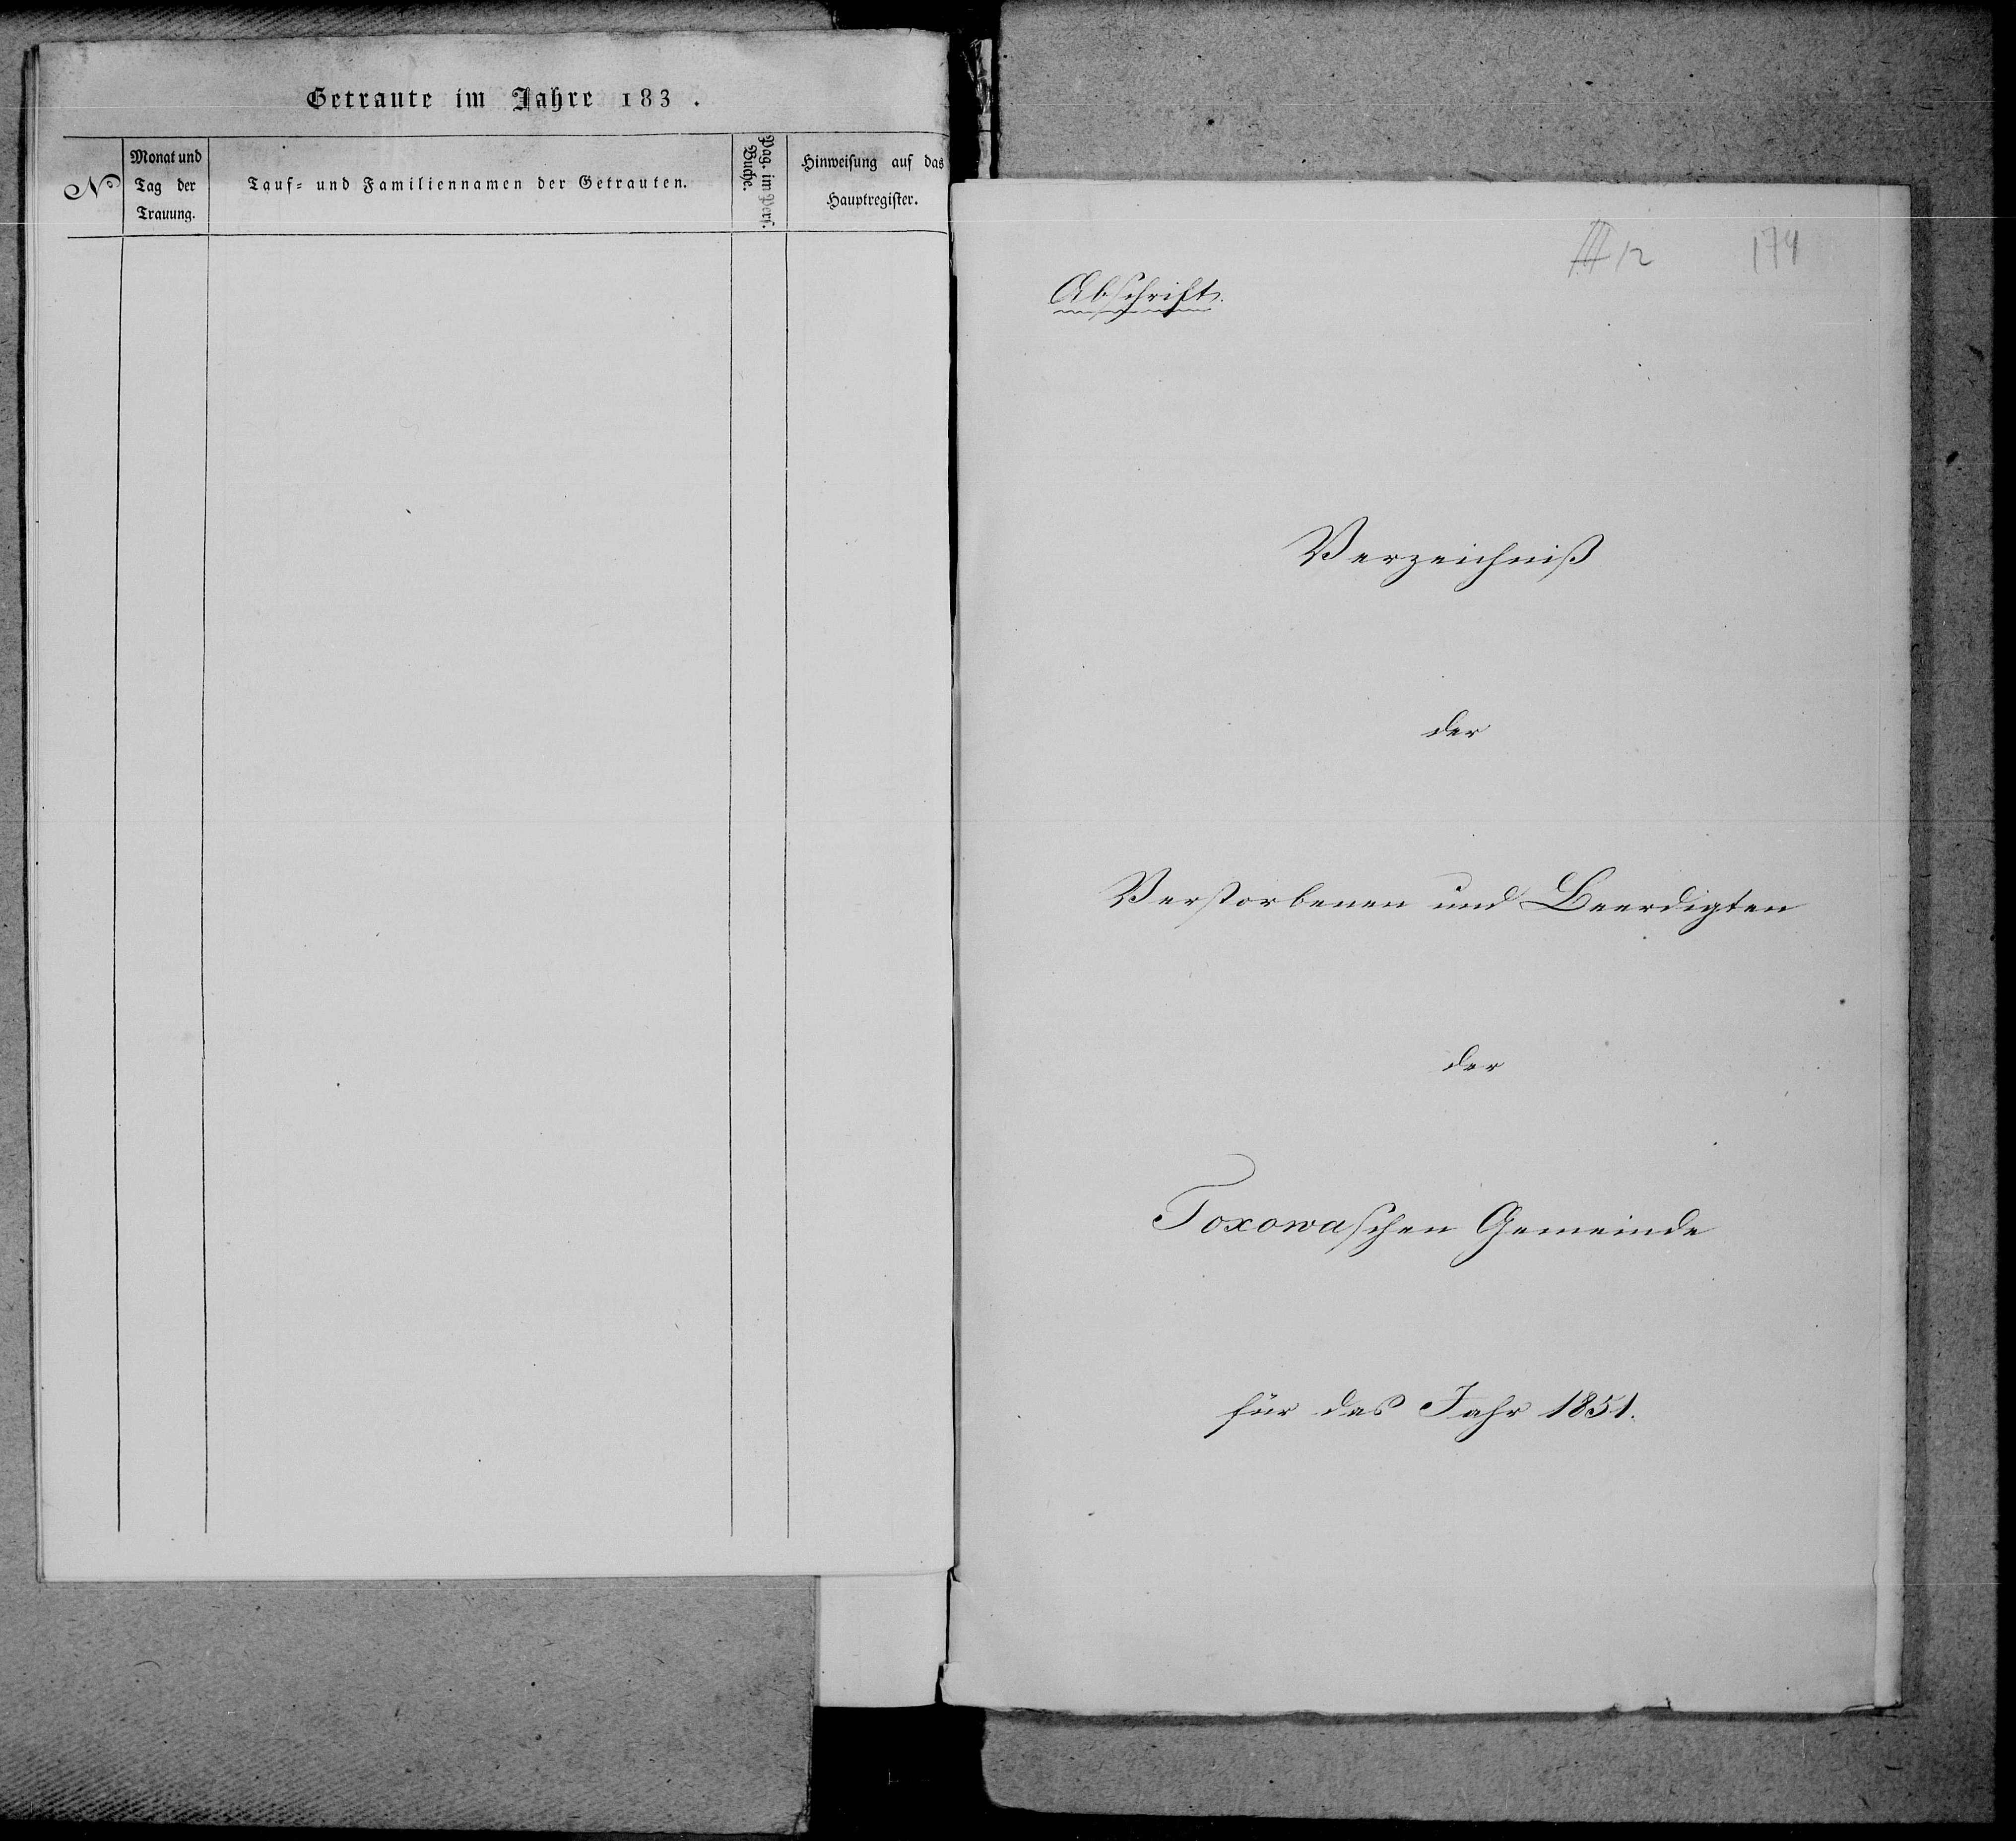 Getraute im Jahre 183 .
№
Monat und
Tag der
Trauung.
Tauf= und Familiennamen der Getrauten.
Pag. im Pers.
Buche.
Hinweisung auf das
Hauptregister.
III 12 174
Abschrift.
Verzeichniß
der
Verstorbenen und Beerdigten
der
Toxowaschen Gemeinde
für das Jahr 1851.